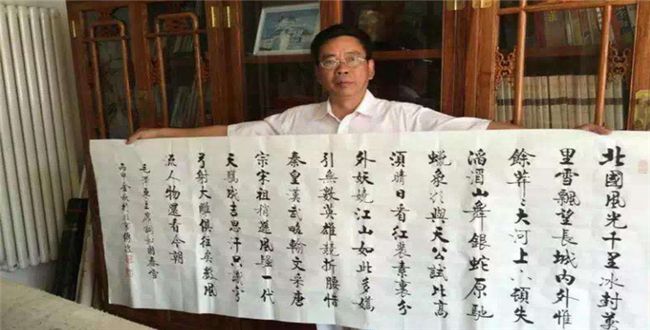 北國風光千里冰封萬
里雪飄望長城內外惟
餘莽〻大河上下頓失
滔滔山舞銀蛇原馳
蠟象欲與天公試比高
須晴日看紅裝素裹分
外妖嬈江山如此多嬌
引無數英雄競折腰惜
秦皇漢武略輸文采唐
宗宋祖稍遜風騷一代
天驕成吉思汗只識彎
弓射大雕俱往矣數風
流人物還看今朝
毛澤東主席詞沁園春雪